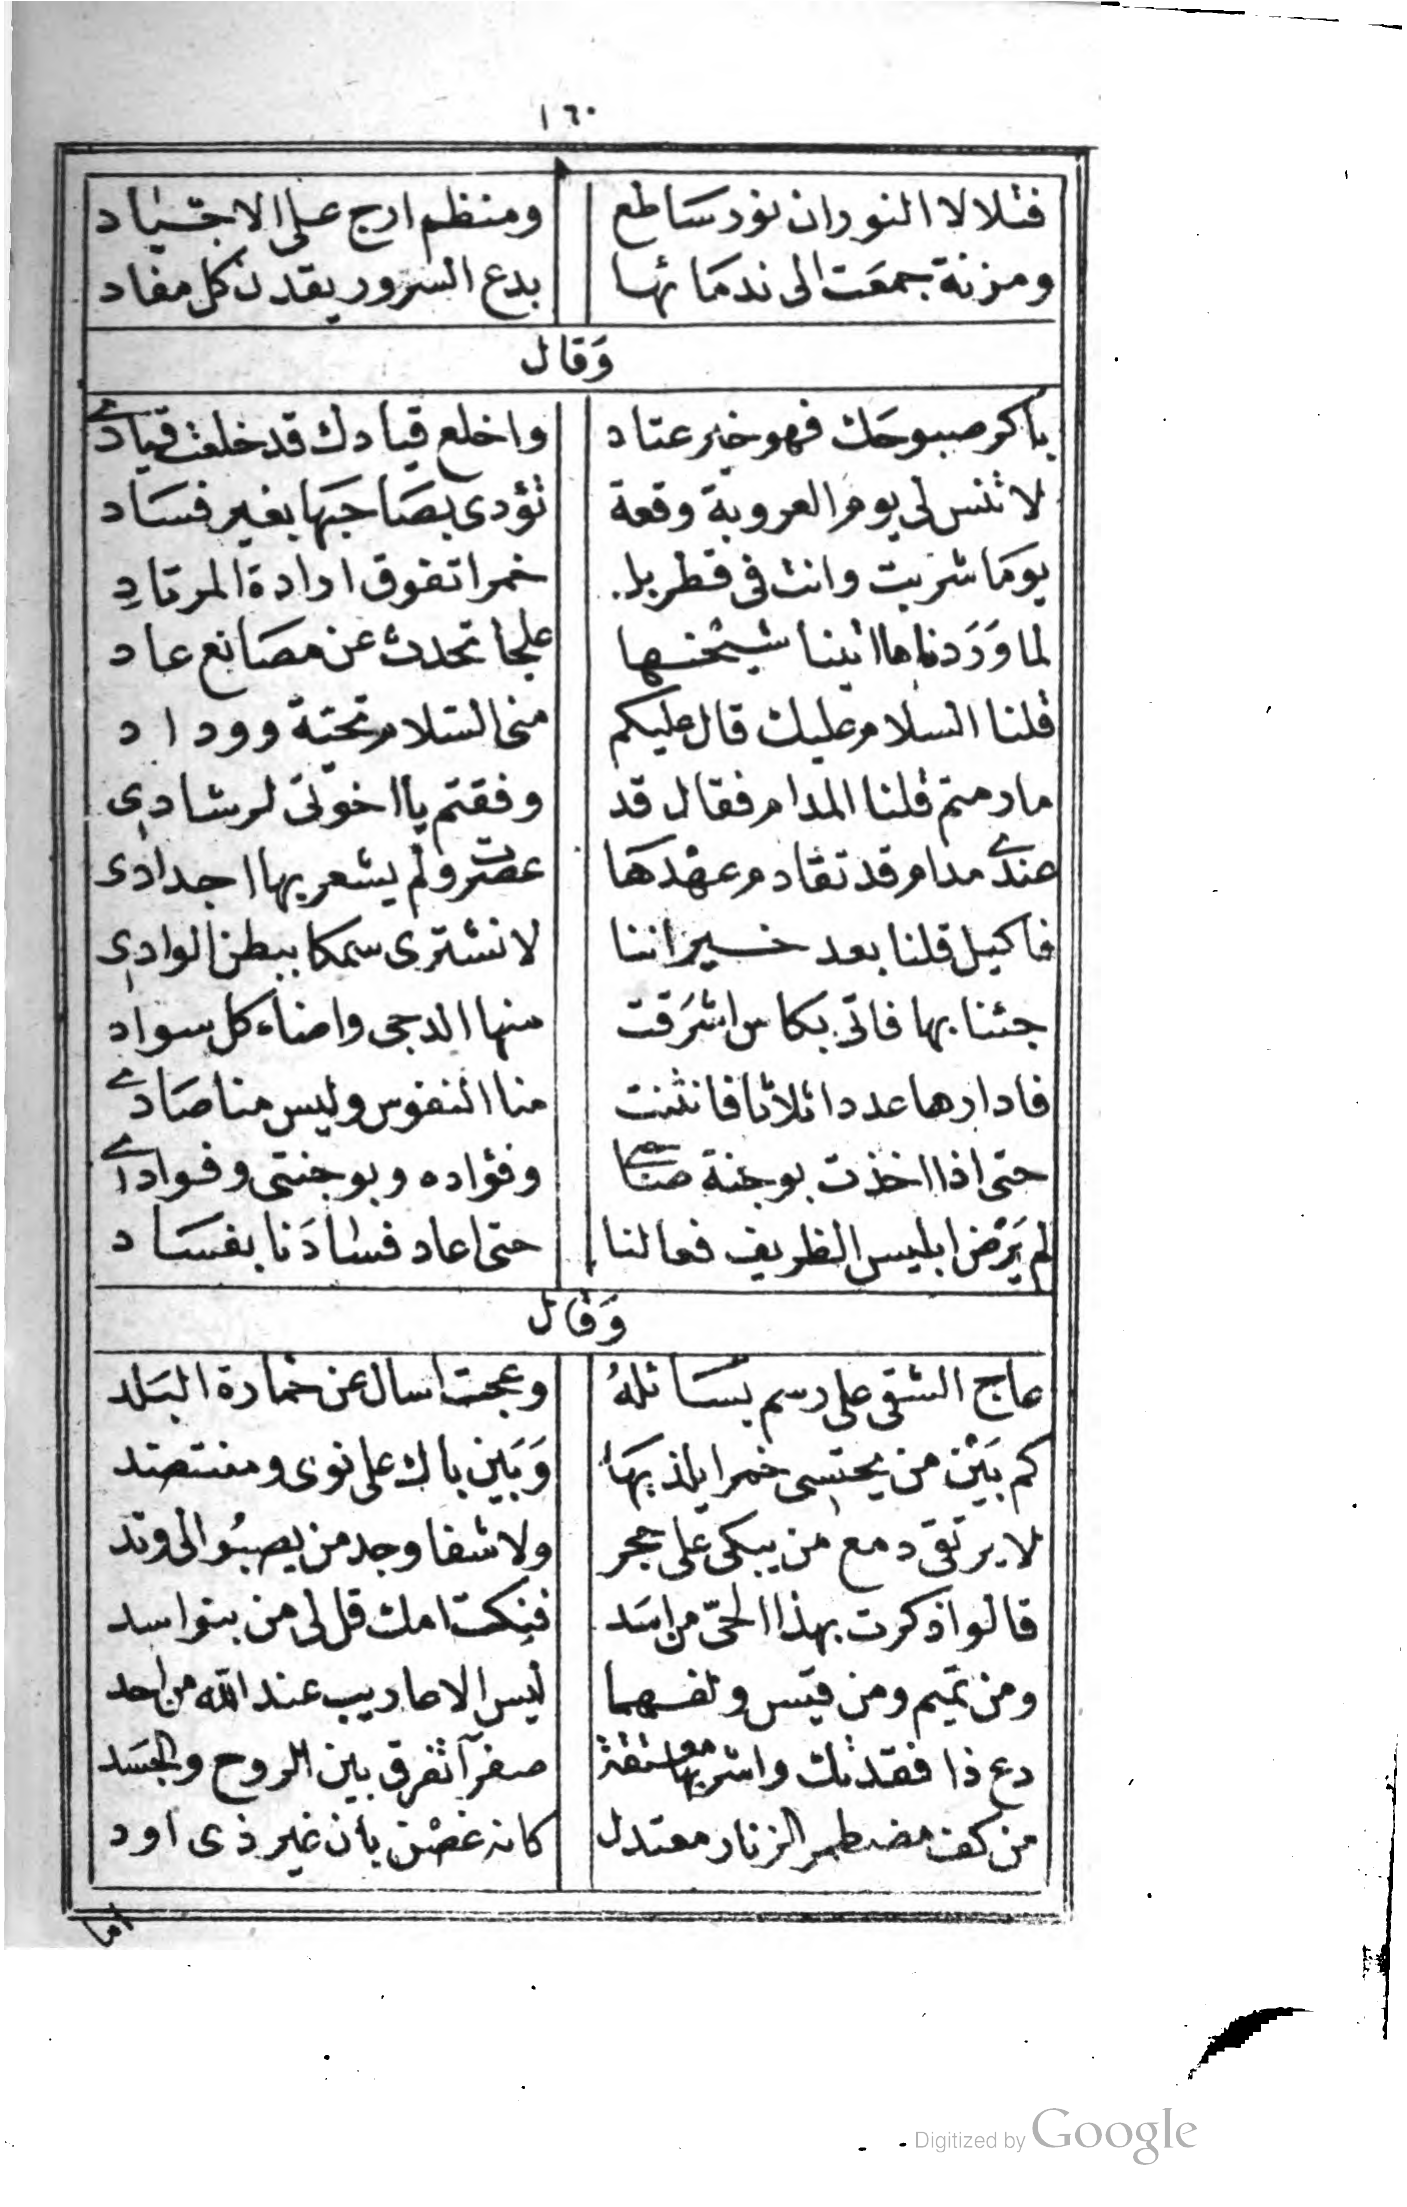 ١٦٠
فتلالا النوران نور ساطع ومنظم ارج على الاجتياد
ومزنة جمعت الى ندمائها بدع السرور يقدن كل مفاد
وَقال
باكر صبوحك فهو خير عتاد واخلع قيادك قد خلعت قيادي
لا تنس لي يوم العروبة وقعة تؤدى بصاحبها بغير فساد
يوما شربت وانت في قطربل خمرا تفوق ارادة المرتاد
لما وَرَدناها اتينا شيخها علجا تحدث عن مصانع عاد
قلنا السلام عليك قال عليكم منى السلام تحية ووداد
ما رمتم قلنا المدام فقال قد وفقتم يا اخوتى لرشادى
عندي مدام قد تقادم عهدها عصرت ولم يشعر بها اجدادى
فاكيل قلنا بعد خبر اننا لا نشترى سمكا ببطن الوادى
جئنا بها فاتى بكاس اشرَقت منها الدجى واضاء كل سواد
فادارها عددا ثلاثا فانثنت منا النفوس وليس منا صادي
حتى اذا اخذت بوجنة صاحبي وفؤاده وبوجنتى وفوادي
لم يَرْض ابليس الظريف فعالنا حتى اعاد فسادَنا بفسَاد
وَقال
عاج الشقى على رسم يسَائلهُ وعجت اسال عن خمارة البَلد
كم بَيْن من يحتسى خمرا يلذ بهَا وَبَين باك على نوى ومنتضد
لا يرتقى دمع من يبكى على حجر ولا شفا وجد من يصبُو الى وتد
قالوا ذكرت بهذا الحىّ من اسَد فنِكت امك قل لى من بنو اسد
ومن تميم ومن قيس ولفهما ليس الاعاريب عند الله من احد
دع ذا فقدتك واشربها معتقة صفرآ تفرق بين الروح والجسَد
من كف مضطمر الزنار معتدل كانه غصْن بان غير ذى اود
اما
Digitized by Google